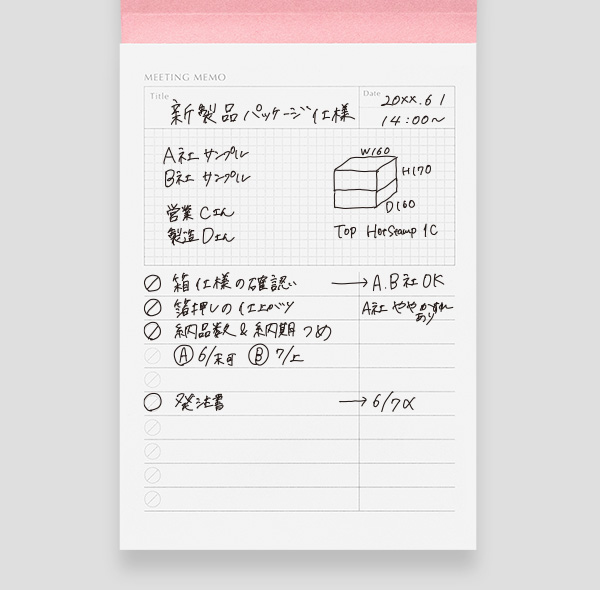 MEETING MEMO
Title
新製品パッケージ仕様
Date
20XX.6 1
14:00〜
A社 サンプル
B社 サンプル
営業 Cさん
製造 Dさん
W160
H170
D160
Top HotStamp 1C
箱仕様の確認 → A.B社OK
箔押しの仕上がり A社 ややかすれ
あり
納品数&納期つめ
A 6/末可 B 7/上
発注書 → 6/7〆